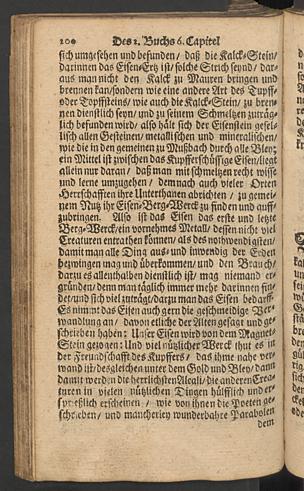 200 Des 2. Buchs 6. Capitel
sich umgesehen und befunden / daß die Kalck-Stein /
darinnen das Eisen-Ertz ist / solche Strich seynd / dar-
aus man nicht den Kalck zu Mauren bringen und
brennen kan / sondern wie eine andre Art des Tupff-
oder Topffsteins / wie auch die Kalck-Stein / zu bren-
nen dienstlich seyn / und zu seinem Schmeltzen zuträg-
lich befunden wird / also hält sich der Eisenstein gesel-
lisch allen Gesteinen / metallischen und mineralischen /
wie die in den gemeinen zu Mußbach durch alle Bley;
ein Mittel ist zwischen das Kupfferschüssige Eisen / liegt
allein nur daran / daß man mit schmeltzen recht wisse
und lerne umzugehen / demnach auch vieler Orten
Herrschafften ihre Unterthanen abrichten / zu gemei-
nem Nutz ihr Eisen-Berg-Werck zu finden und auff-
zubringen. Also ist das Eisen das erste und letzte
Berg-Werck / ein vornehmes Metall / dessen nicht viel
Creaturen entrathen können / als des nothwendigsten /
damit man alle Ding aus- und inwendig der Erden
bezwingen mag und überkommen / und den Brauch /
darzu es allenthalben dienstlich ist / mag niemand er-
gründen / denn man täglich immer mehr darinnen fin-
det / und sich viel zuträgt / darzu man das Eisen bedarff.
Es nimmt das Eisen auch gern die geschmeidige Ver-
wandlung an / davon etliche der Alten gesagt und ge-
schrieben haben: Unser Eisen wird von dem Magnet-
Stein gezogen: Und viel nützlicher Werck thut es in
der Freundschafft des Kupffers / das ihme nahe ver-
wand ist / desgleichen unter dem Gold und Bley / dann
damit werden die herrlichsten Alcali / die anderen Crea-
turen in vielen nützlichen Dingen hülfflich und er-
sprießlich erscheinen / wie von ihnen die Poeten ge-
schrieben / und mancherley wunderbahre Parabolen
dem